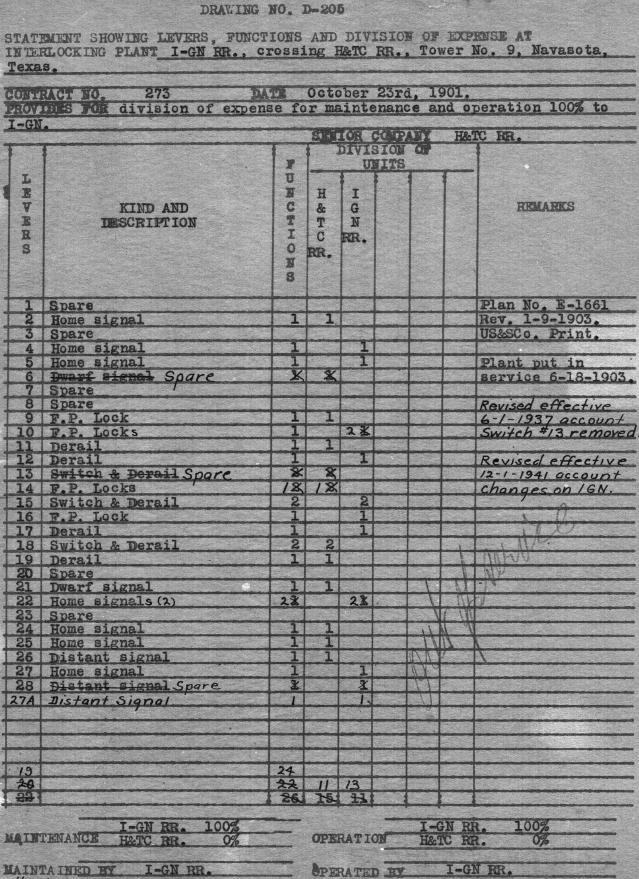 DRAWING NO. D-205
STATEMENT SHOWING LEVERS, FUNCTIONS AND DIVISION OF EXPENSE AT
INTERLOCKING PLANT I-GN RR., crossing H&TC RR., Tower No. 9, Navasota,
Texas.
CONTRACT NO. 273 DATE October 23rd, 1901.
PROVIDES FOR division of expense for maintenance and operation 100% to
I-GN.
SENIOR COMPANY H&TC RR.
LEVERS KIND AND DESCRIPTION FUNCTIONS DIVISION OF UNITS H&TC RR. IGN RR. REMARKS
1 Spare Plan No. E-1661
2 Home signal 1 1 Rev. 1-9-1903.
3 Spare US&SCo. Print.
4 Home signal 1 1
5 Home signal 1 1 Plant put in
6 Dwarf signal Spare service 6-18-1903.
7 Spare
8 Spare Revised effective
9 F.P. Lock 1 1 6-1-1937 account
10 F.P. Locks 1 2 Switch #13 removed
11 Derail 1 1
12 Derail 1 1 Revised effective
13 Switch & Derail Spare 12-1-1941 account
14 F.P. Locks 1 1 changes on IGN.
15 Switch & Derail 2 2
16 F.P. Lock 1 1
17 Derail 1 1
18 Switch & Derail 2 2
19 Derail 1 1
20 Spare
21 Dwarf signal 1 1
22 Home signals (2) 2 2
23 Spare
24 Home signal 1 1
25 Home signal 1 1
26 Distant signal 1 1
27 Home signal 1 1
28 Distant signal Spare
27A Distant Signal 1 1
out of service
19 24
20 22 11 13
22 26 15 11
I-GN RR. 100% I-GN RR. 100%
MAINTENANCE H&TC RR. 0% OPERATION H&TC RR. 0%
MAINTAINED BY I-GN RR. OPERATED BY I-GN RR.